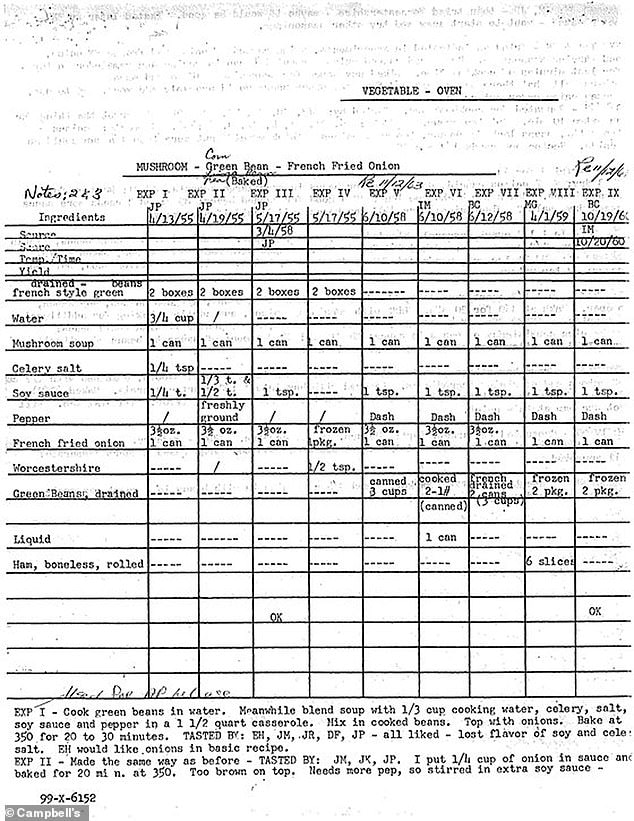 VEGETABLE - OVEN
Corn
MUSHROOM - Green Bean - French Fried Onion
(Baked)
Re 11/12/63
Notes: 2 & 3 EXP I EXP II EXP III EXP IV EXP V EXP VI EXP VII EXP VIII EXP IX
JP JP JP IM BC MG BC
Ingredients 4/13/55 4/19/55 5/17/55 5/17/55 6/10/58 6/10/58 6/12/58 4/1/59 10/19/60
Source 3/4/58 IM
Score JP 10/20/60
Temp./Time
Yield
drained - beans
french style green 2 boxes 2 boxes 2 boxes 2 boxes -------- ----- ----- ----- -----
Water 3/4 cup / ----- ----- ----- ----- ----- ----- -----
Mushroom soup 1 can 1 can 1 can 1 can 1 can 1 can 1 can 1 can 1 can
Celery salt 1/4 tsp ------ ----- ----- ----- ----- ----- ----- -----
1/3 t. &
Soy sauce 1/4 t. 1/2 t. 1 tsp. ----- 1 tsp. 1 tsp. 1 tsp. 1 tsp. 1 tsp.
freshly
Pepper / ground / / Dash Dash Dash Dash Dash
3½oz. 3½ oz. 3½oz. frozen 3½ oz. 3½oz. 3½oz.
French fried onion 1 can 1 can 1 can 1pkg. 1 can 1 can 1 can 1 can 1 can
Worcestershire ----- / ----- 1/2 tsp. ----- ----- ----- ----- -----
canned cooked french frozen frozen
Green Beans, drained ----- ----- ----- ----- 3 cups 2-1# drained 2 pkg. 2 pkg.
(canned) 2 cans (3 cups)
Liquid ----- ------ ----- ----- ----- 1 can ----- ----- -----
Ham, boneless, rolled ----- ----- ----- ----- ----- ----- ----- 6 slices -----
OK OK
EXP I - Cook green beans in water. Meanwhile blend soup with 1/3 cup cooking water, celery, salt,
soy sauce and pepper in a 1 1/2 quart casserole. Mix in cooked beans. Top with onions. Bake at
350 for 20 to 30 minutes. TASTED BY: EH, JM, JR, DF, JP - all liked - lost flavor of soy and cele
salt. EH would like onions in basic recipe.
EXP II - Made the same way as before - TASTED BY: JM, JK, JP. I put 1/4 cup of onion in sauce and
baked for 20 mi n. at 350. Too brown on top. Needs more pep, so stirred in extra soy sauce -
99-X-6152
© Campbell's